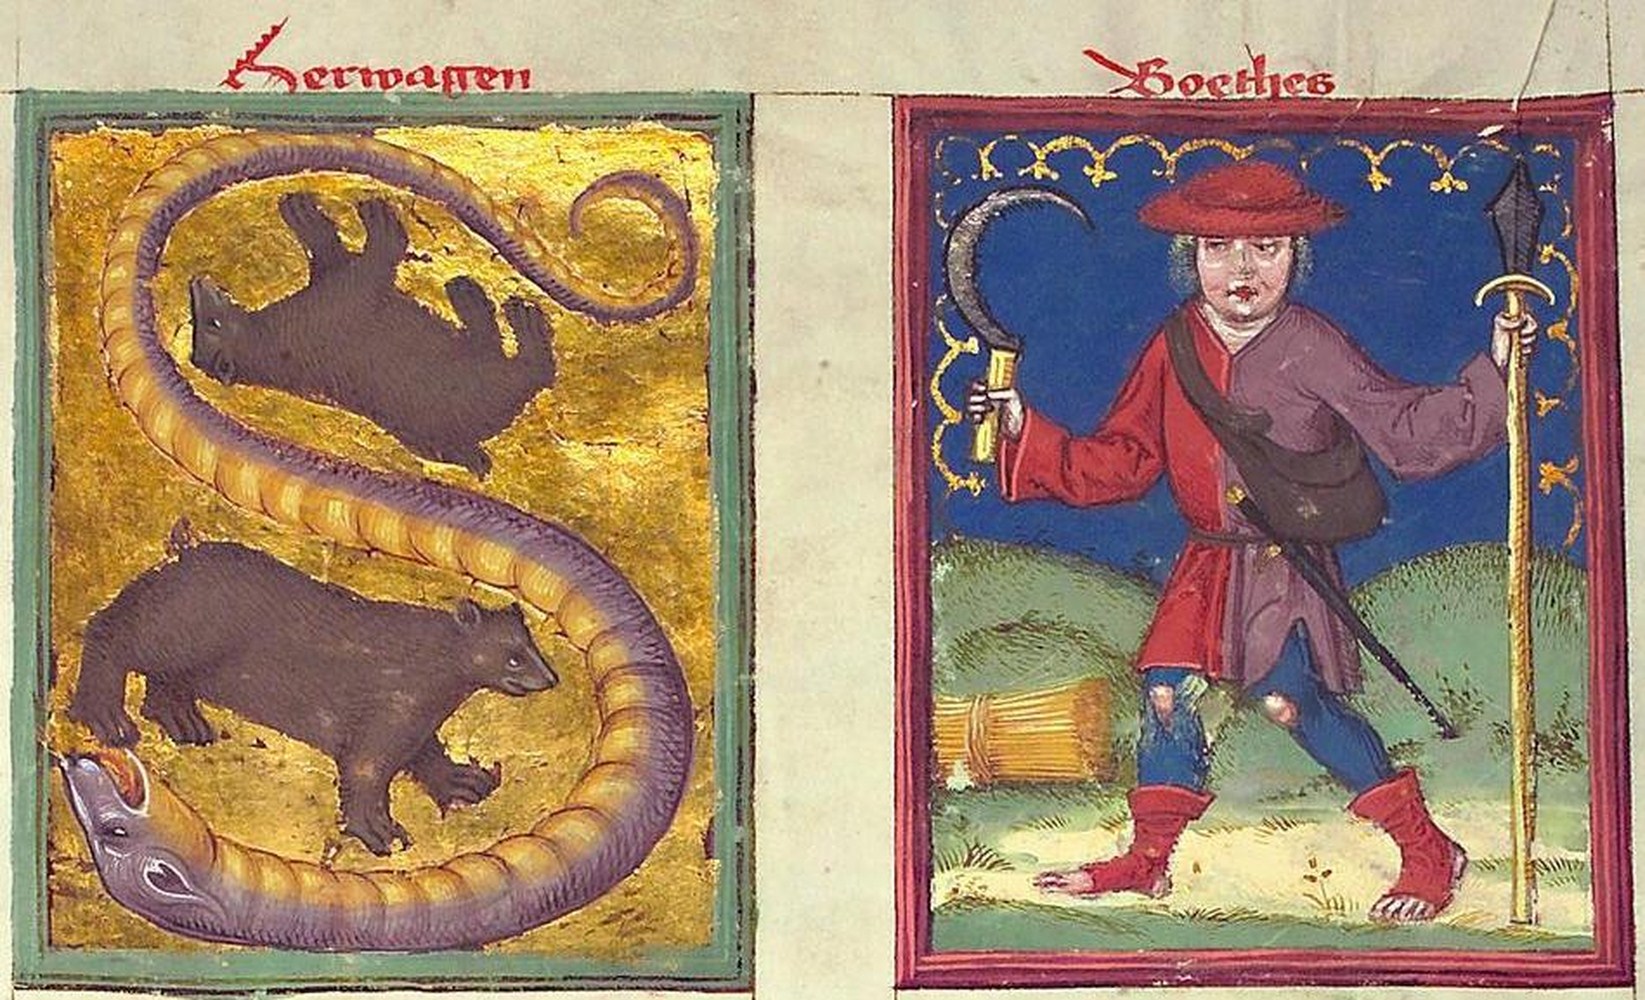 Herwagen
Boethes